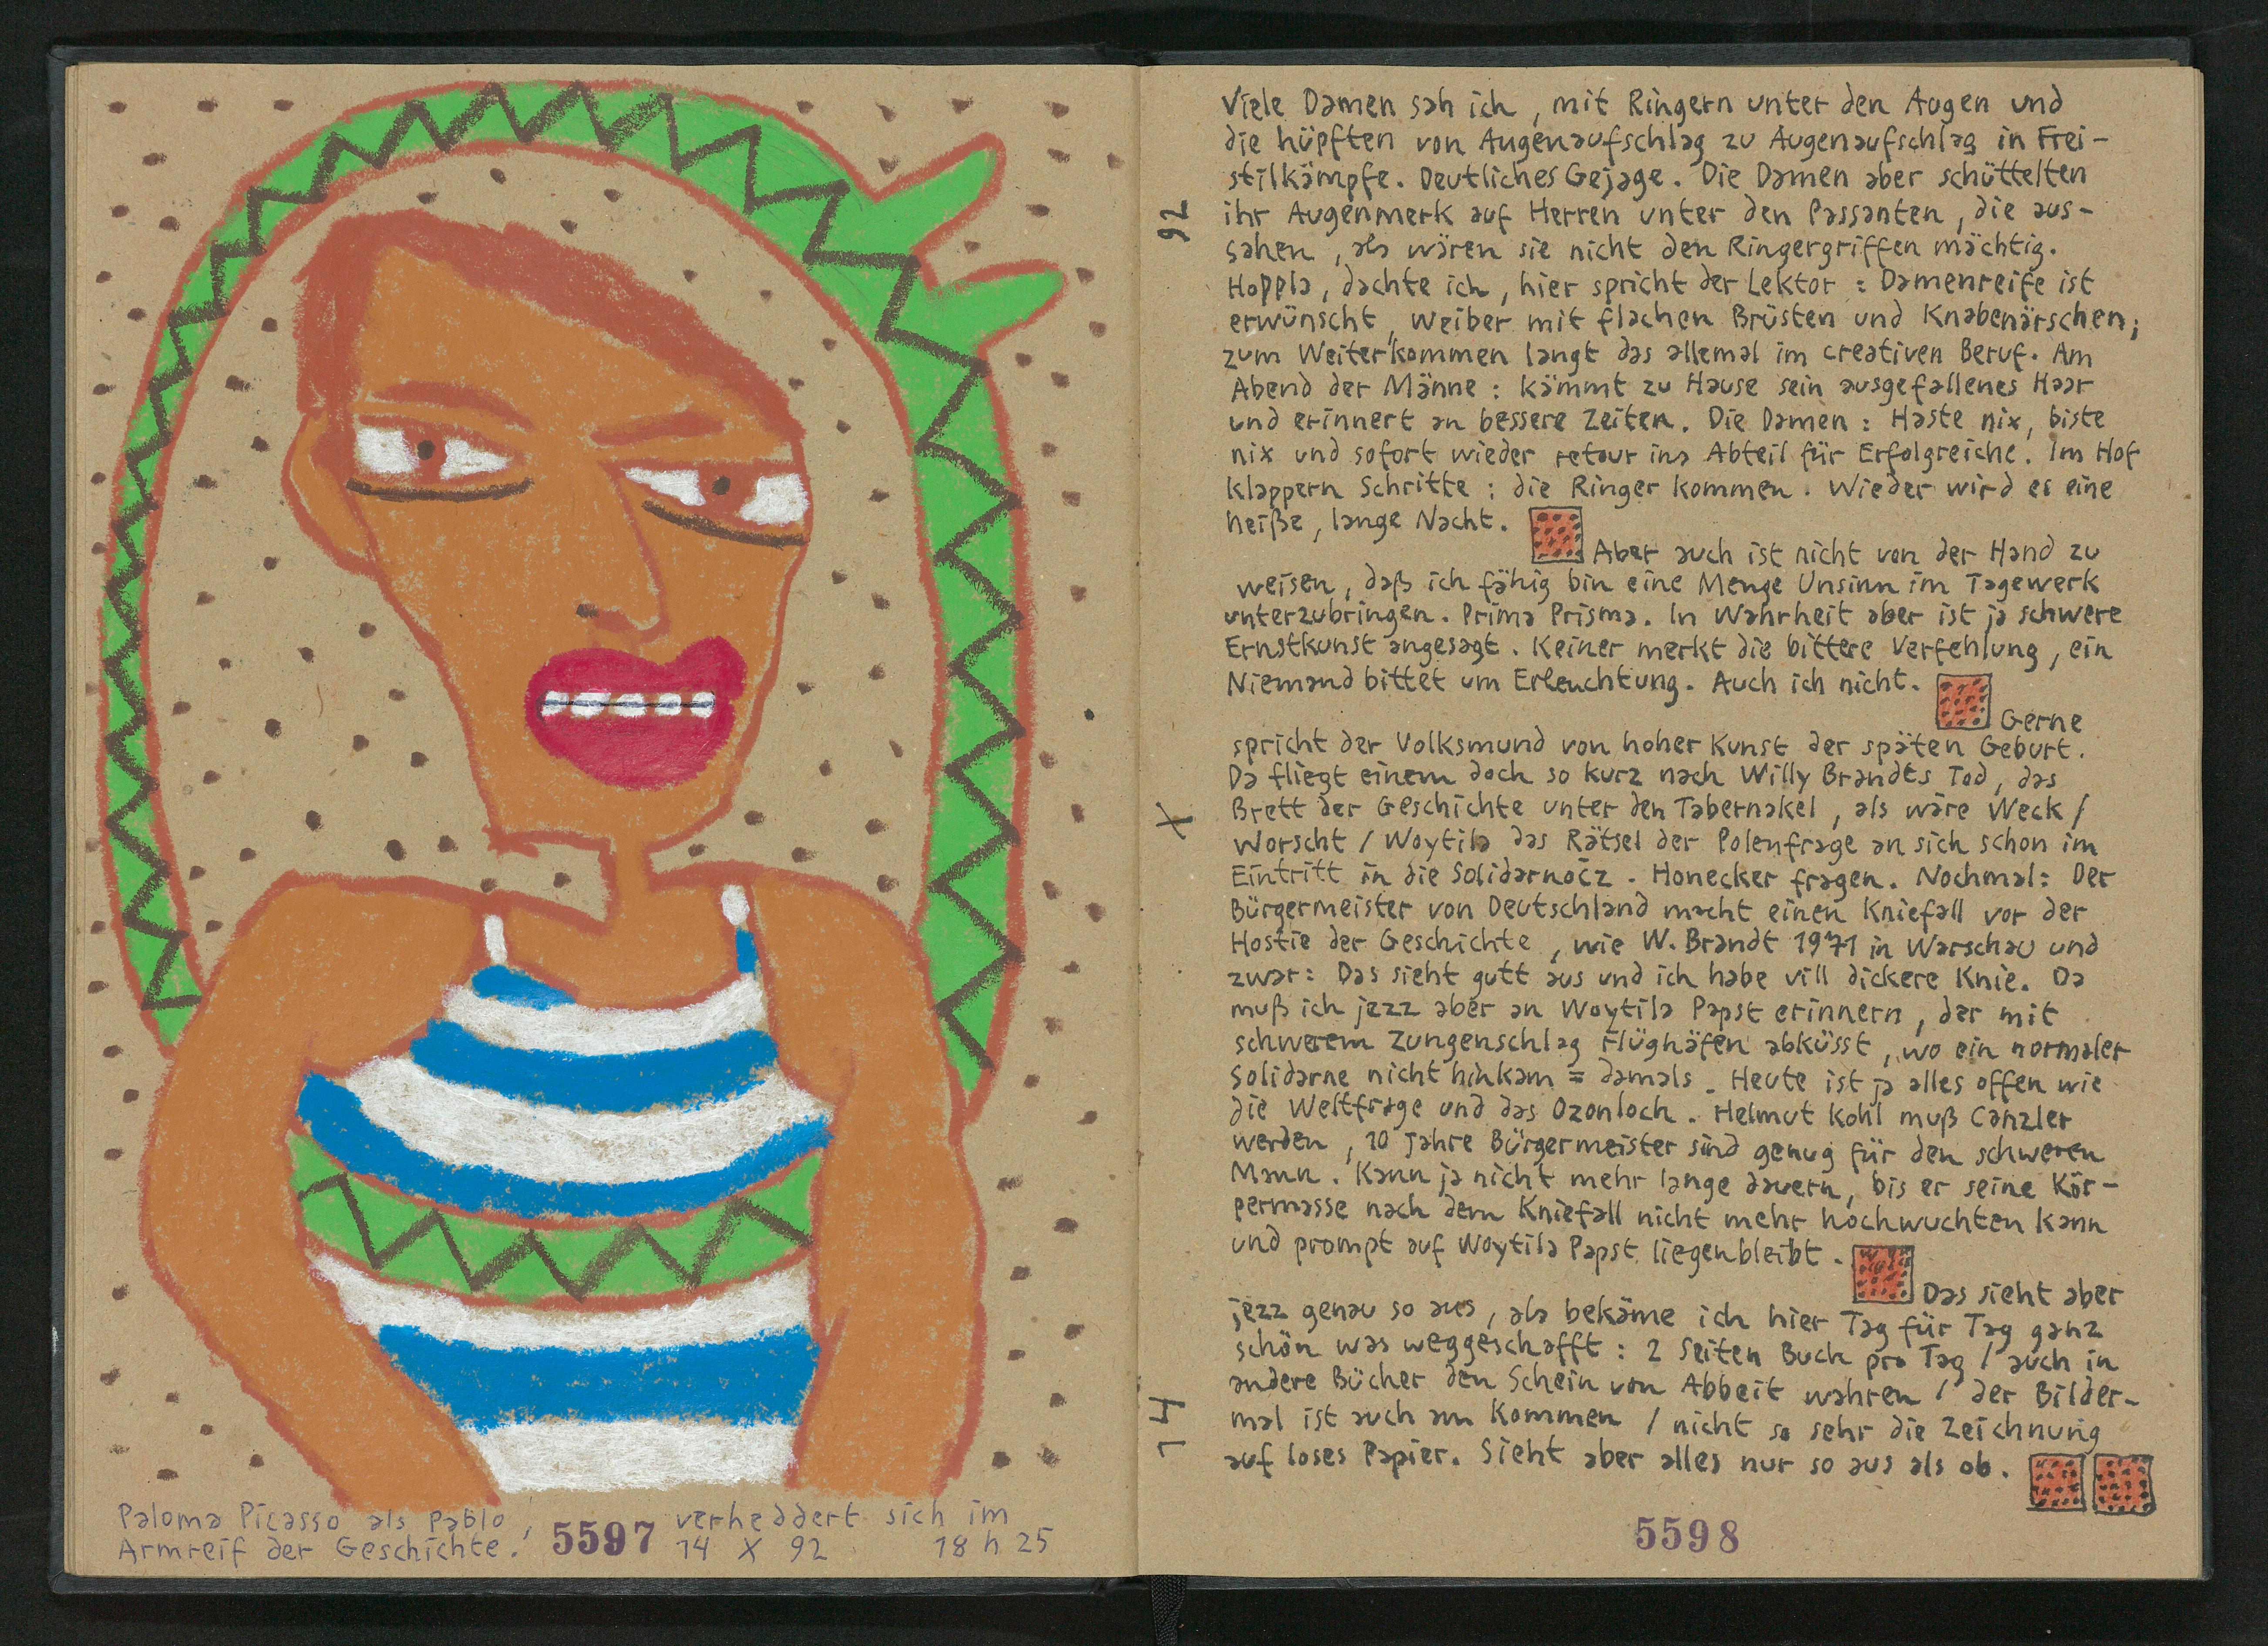 Paloma Picasso als Pablo, verheddert sich im
Armreif der Geschichte. 5597 14 X 92 18 h 25
92
X
14
Viele Damen sah ich, mit Ringern unter den Augen und
die hüpften von Augenaufschlag zu Augenaufschlag in Frei-
stilkämpfe. Deutliches Gejage. Die Damen aber schüttelten
ihr Augenmerk auf Herren unter den Passanten, die aus-
sahen, als wären sie nicht den Ringergriffen mächtig.
Hoppla, dachte ich, hier spricht der Lektor: Damenreife ist
erwünscht, Weiber mit flachen Brüsten und Knabenärschen;
zum Weiterkommen langt das allemal im creativen Beruf. Am
Abend der Männe: kämmt zu Hause sein ausgefallenes Haar
und erinnert an bessere Zeiten. Die Damen: Haste nix, biste
nix und sofort wieder retour ins Abteil für Erfolgreiche. Im Hof
klappern Schritte: die Ringer kommen. Wieder wird es eine
heiße, lange Nacht.
Aber auch ist nicht von der Hand zu
weisen, daß ich fähig bin eine Menge Unsinn im Tagewerk
unterzubringen. Prima Prisma. In Wahrheit aber ist ja schwere
Ernstkunst angesagt. Keiner merkt die bittere Verfehlung, ein
Niemand bittet um Erleuchtung. Auch ich nicht.
Gerne
spricht der Volksmund von hoher Kunst der späten Geburt.
Da fliegt einem doch so kurz nach Willy Brandts Tod, das
Brett der Geschichte unter den Tabernakel, als wäre Weck /
Worscht / Woytila das Rätsel der Polenfrage an sich schon im
Eintritt in die Solidarnocz. Honecker fragen. Nochmal: Der
Bürgermeister von Deutschland macht einen Kniefall vor der
Hostie der Geschichte, wie W. Brandt 1971 in Warschau und
zwar: Das sieht gutt aus und ich habe vill dickere Knie. Da
muß ich jezz aber an Woytila Papst erinnern, der mit
schwerem Zungenschlag Flüghäfen abküsst, wo ein normaler
Solidarne nicht hinkam = damals. Heute ist ja alles offen wie
die Weltfrage und das Ozonloch. Helmut Kohl muß Canzler
werden, 10 Jahre Bürgermeister sind genug für den schweren
Mann. Kann ja nicht mehr lange dauern, bis er seine Kör-
permasse nach dem Kniefall nicht mehr hochwuchten kann
und prompt auf Woytila Papst liegenbleibt.
Das sieht aber
jezz genau so aus, als bekäme ich hier Tag für Tag ganz
schön was weggeschafft: 2 Seiten Buch pro Tag / auch in
andere Bücher den Schein von Abbeit wahren / der Bilder-
mal ist auch am Kommen / nicht so sehr die Zeichnung
auf loses Papier. Sieht aber alles nur so aus als ob.
5598